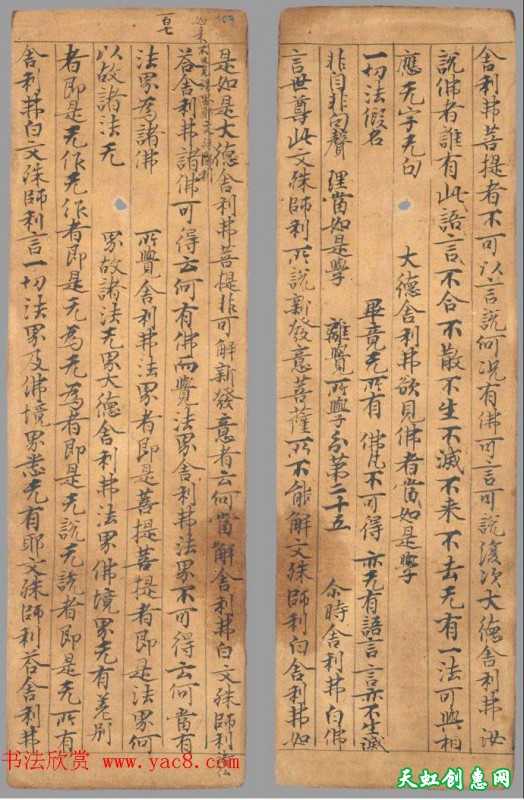 舍利弗菩提者不可以言說何况有佛可言可說復次大德舍利弗汝
說佛者誰有此語言不合不散不生不滅不来不去无有一法可與相
應无字无句 大德舍利弗欲見佛者當如是學
一切法假名 畢竟无所有 佛不可得 亦无有語言 言亦不生滅
非自非向聲 理當如是學 離覺所學分第二十五 尒時舍利弗白佛
言世尊此文殊師利所說新發意菩薩所不能解文殊師利白舍利弗如
是如是大德舍利弗菩提非可解新發意者云何當解舍利弗白文殊師利
荅舍利弗諸佛可得云何有佛而覺法界舍利弗法界不可得云何當有
法界為諸佛 所覺舍利弗法界者即是菩提菩提者即是法界何
以故諸法无 界故諸法无界大德舍利弗法界佛境界无有差別
者即是无作无作者即是无為无為者即是无說无說者即是无所有
舍利弗白文殊師利言一切法界及佛境界悉无有耶文殊師利荅舍利弗
书法欣赏 www.yac8.com
天虹创意网